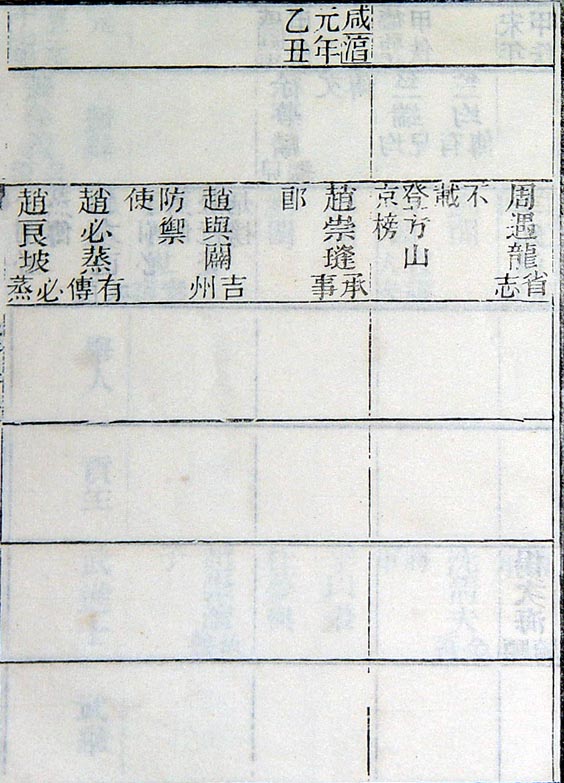 周遇龍省志
不載
登方山
京榜
咸湻
元年
乙丑
趙崇承事
郎
趙與吉州
防禦
使
趙必蒸有傳
趙艮坡必蒸